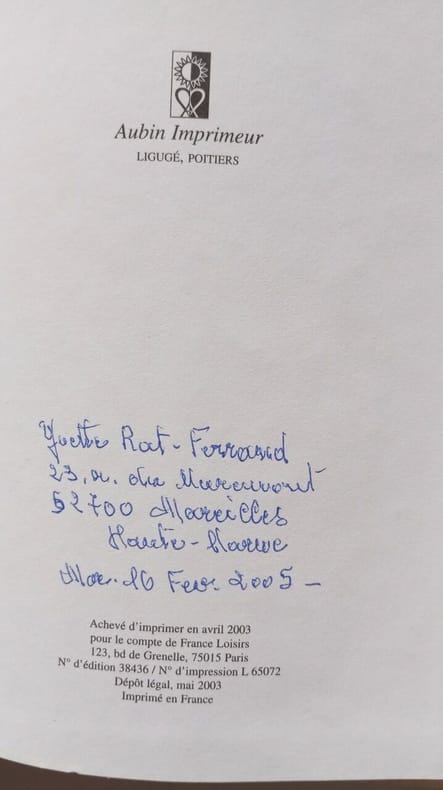 Aubin Imprimeur
LIGUGÉ, POITIERS
Yvette Rat-Ferrand
23, r. du
52700 Mareilles
Haute-Marne
16 Fev. 2005 –
Achevé d'imprimer en avril 2003
pour le compte de France Loisirs
123, bd de Grenelle, 75015 Paris
N° d'édition 38436 / N° d'impression L 65072
Dépôt légal, mai 2003
Imprimé en France